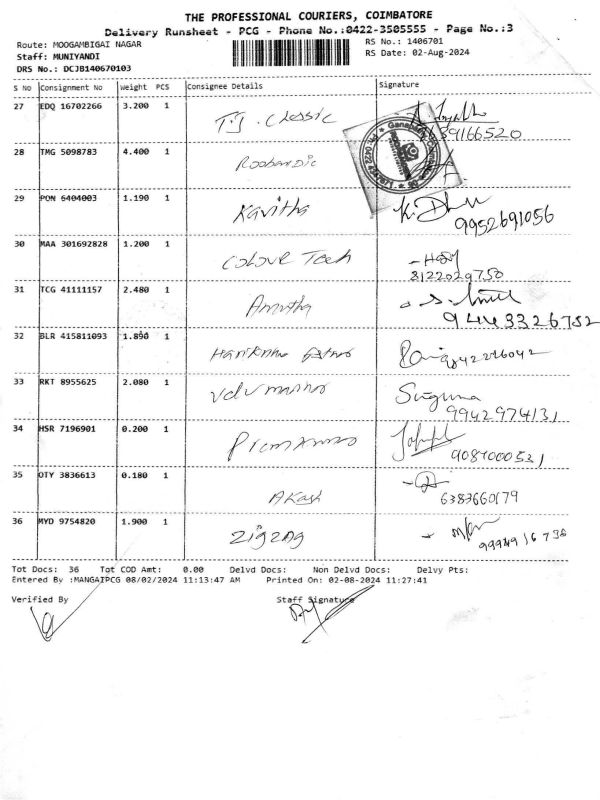 THE PROFESSIONAL COURIERS, COIMBATORE
Delivery Runsheet - PCG - Phone No.:0422-3505555 - Page No.:3
Route: MOOGAMBIGAI NAGAR RS No.: 1406701
Staff: MUNIYANDI RS Date: 02-Aug-2024
DRS No.: DCJB140670103
S No Consignment No Weight PCS Consignee Details Signature
27 EDQ 16702266 3.200 1 T.J. Classic
39166520
28 TMG 5098783 4.400 1
29 PON 6404003 1.190 1 Kavitha
9952691056
30 MAA 301692828 1.200 1 Colour Tech
8122029750
31 TCG 41111157 2.480 1 Amutha
94443326782
32 BLR 415811093 1.890 1
9842226042
33 RKT 8955625 2.080 1 Suguna
9942974131
34 HSR 7196901 0.200 1
9087000531
35 OTY 3836613 0.180 1 Akash
6383660179
36 MYD 9754820 1.900 1 zigzag
9994916738
Tot Docs: 36 Tot COD Amt: 0.00 Delvd Docs: Non Delvd Docs: Delvy Pts:
Entered By :MANGAIPCG 08/02/2024 11:13:47 AM Printed On: 02-08-2024 11:27:41
Verified By Staff Signature